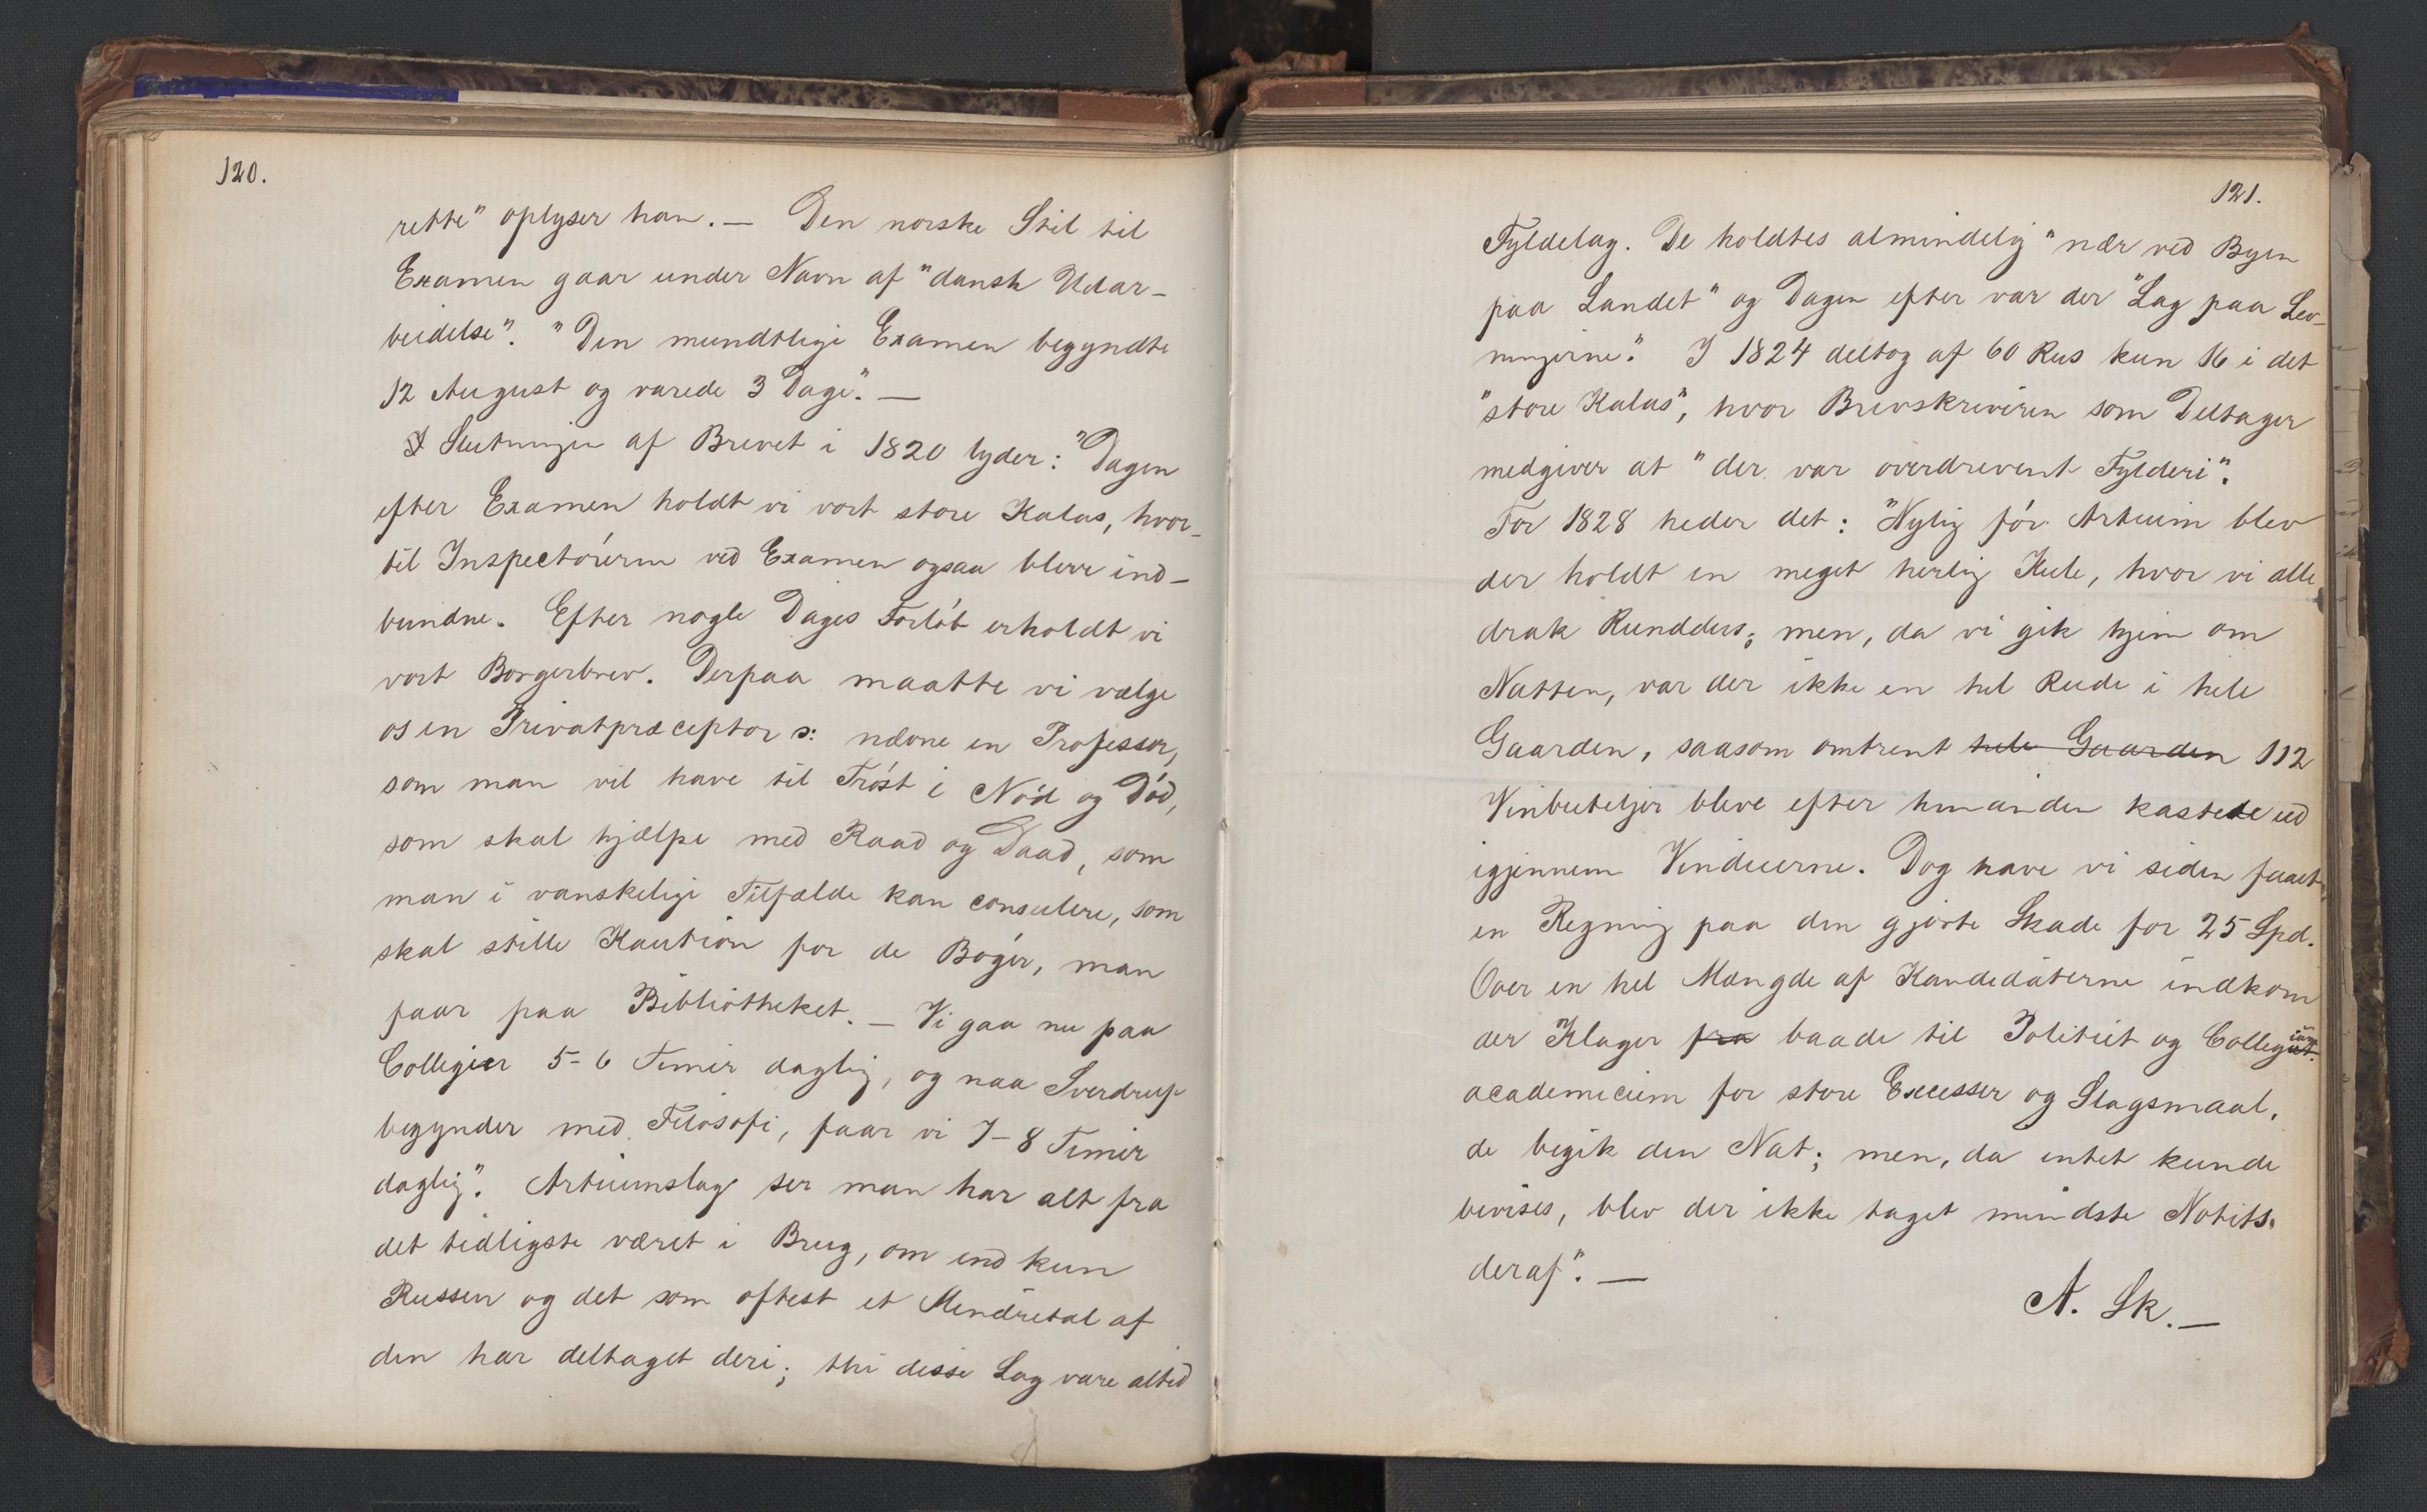 120.
rette" oplyser han. — Den norske Stil til
Examen gaar under Navn af "dansk Udar-
beidelse". "Den mundtlige Examen begyndte
12 August og varede 3 Dage". —
Slutningen af Brevet i 1820 lyder: "Dagen
efter Examen holdt vi vort store Kalas, hvor-
til Inspectórerne ved Examen ogsaa bleve ind-
bundne. Efter nogle Dages Forlób erholdt vi
vort Borgerbrev. Derpaa maatte vi vælge
os en Privatpræceptor ɔ: nævne en Professor,
som man vil have til Tróst i Nód og Dód,
som skal hjælpe med Raad og Daad, som
man i vanskelige Tilfælde kan consulere, som
skal stille Kaution for de Bóger, man
faar paa Bibliotheket. — Vi gaa nu paa
Collegier 5-6 Timer daglig, og naa Sverdrup
begynder med Filosofi, faar vi 7-8 Timer
daglig". Artiumslag ser man har alt fra
det tidligste været i Brug, om end kun
Russen og det som oftest et Mindretal af
den har deltaget deri; thi disse Lag vare altid
121.
Fyldelag. De holdtes almindelig "nær ved Byen
paa Landet" og Dagen efter var der "Lag paa Lev-
ningerne". I 1824 deltog af 60 Rus kun 16 i det
"store Kalas", hvor Brevskriveren som Deltager
medgiver at "der var overdrevent Fylderi".
For 1828 heder det: "Nylig fór Artium blev
der holdt en meget herlig Kule, hvor vi alle
drak Runddus; men, da vi gik hjem om
Natten, var der ikke en hel Rude i hele
Gaarden, saasom omtrent hele Gaarden 112
Vinbuteljer bleve efter hinanden kastede ud
igjennem Vinduerne. Dog have vi siden faaet
en Regning paa den gjorte Skade for 25 Spd.
Over en hel Mængde af Kandidaterne indkom
der Klager fra baade til Politiet og Collegium
academicum for store Excesser og Slagsmaal,
de begik den Nat; men, da intet kunde
bevises, blev der ikke taget mindste Notits
deraf". —
A. Sk. —